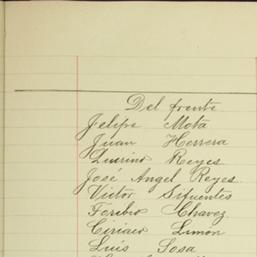 Del frente
Felipe Mota
Juan Herrera
Quirino Reyes
José Angel Reyes
Victor Sifuentes
Toribio Chavez
Ciriaco Limon
Luis Sosa